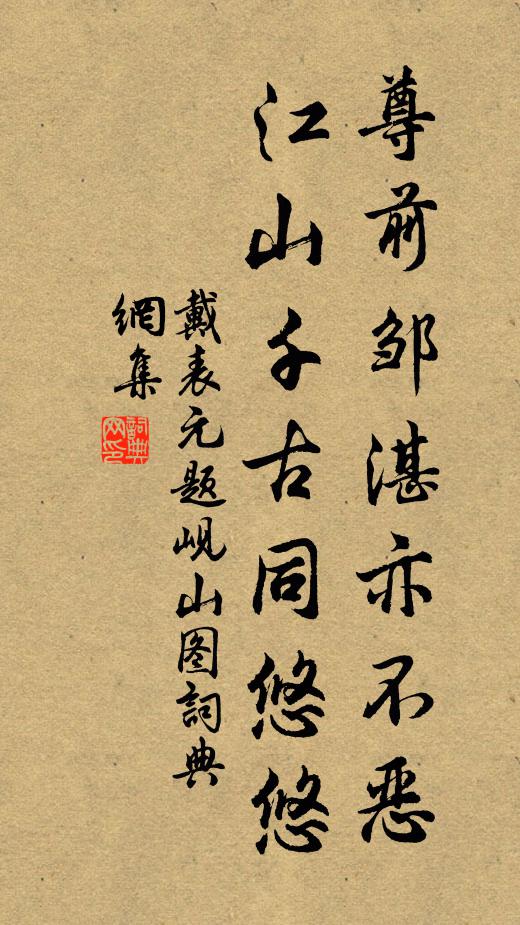 尊前邹湛亦不恶
江山千古同悠悠
戴表元题岘山图詞典
網集
詞典网印